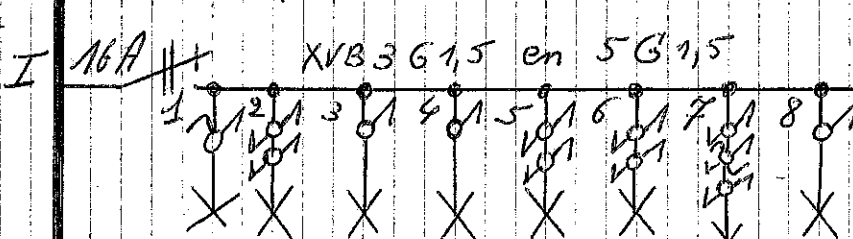 I 16A XVB 3G1,5 en 5G1,5
1 2 3 4 5 6 7 8